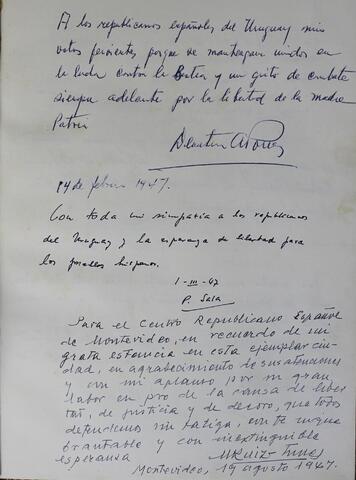 A los republicanos españoles del Uruguay mis
votos fervientes porque se mantengan unidos en
la lucha contra la Bestia y un grito de combate
siempre adelante por la libertad de la madre
Patria
14 de febrero 1947.
Con toda mi simpatia a los republicanos
del Uruguay y la esperanza de libertad para
los pueblos hispanos.
1-III-47
P. Sala
Para el Centro Republicano Español
de Montevideo, en recuerdo de mi
grata estancia en esta ejemplar ciu-
dad, en agradecimiento de sus atenciones
y con mi aplauso por su gran
labor en pro de la causa de liber
tad, de justicia y de decoro, que todos
defendemos sin fatiga, con fe inque
brantable y con inextinguible
esperanza
Montevideo, 19 agosto 1947.